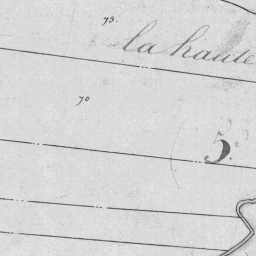 73.
la haute
70
5.